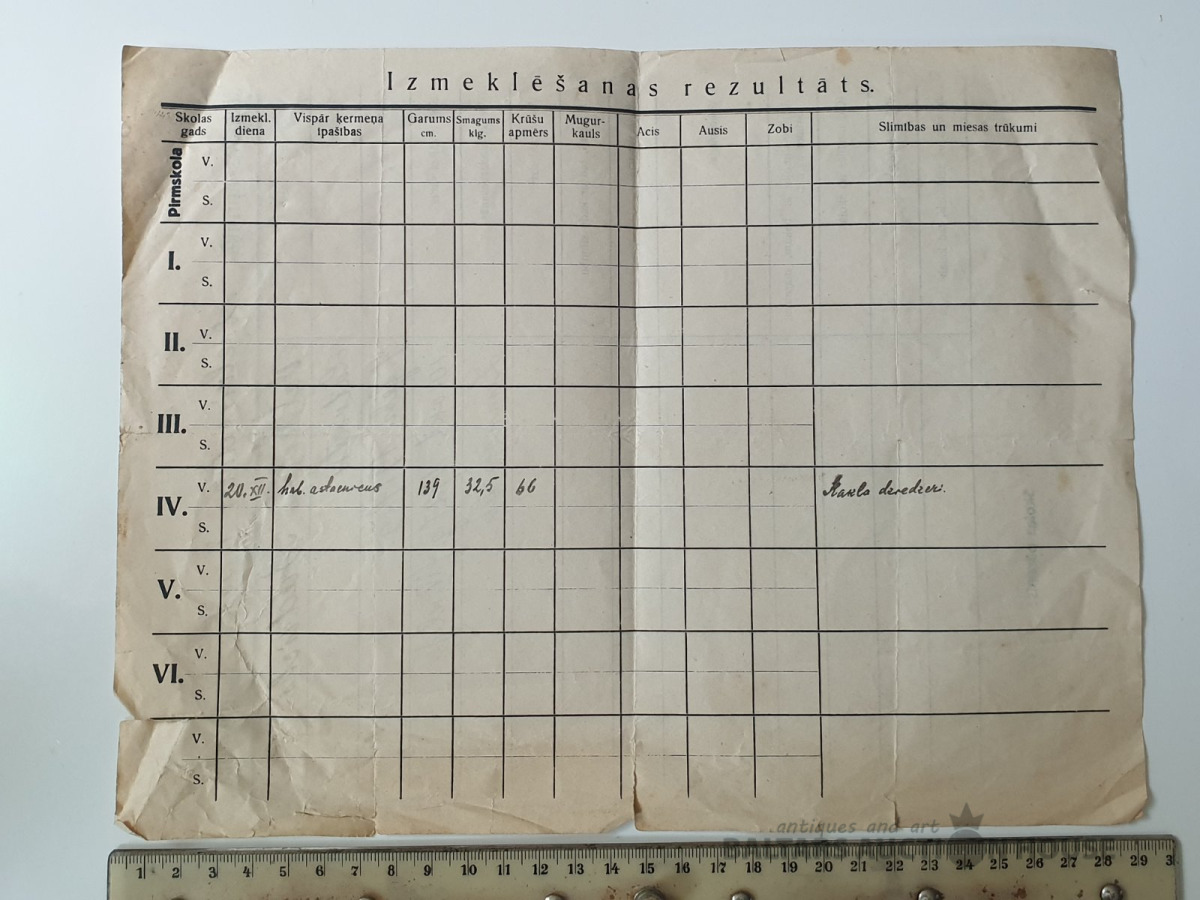 Izmeklēšanas rezultāts.
Skolas gads
Izmekl. diena
Vispār ķermeņa īpašības
Garums cm.
Smagums klg.
Krūšu apmērs
Mugur-kauls
Acis
Ausis
Zobi
Slimības un miesas trūkumi
Pirmskola
V.
S.
I.
V.
S.
II.
V.
S.
III.
V.
S.
IV.
V. 20. XII. hab. 139 32,5 66 Kakla
S.
V.
V.
S.
VI.
V.
S.
V.
S.
antiques and art
1 2 3 4 5 6 7 8 9 10 11 12 13 14 15 16 17 18 19 20 21 22 23 24 25 26 27 28 29 3